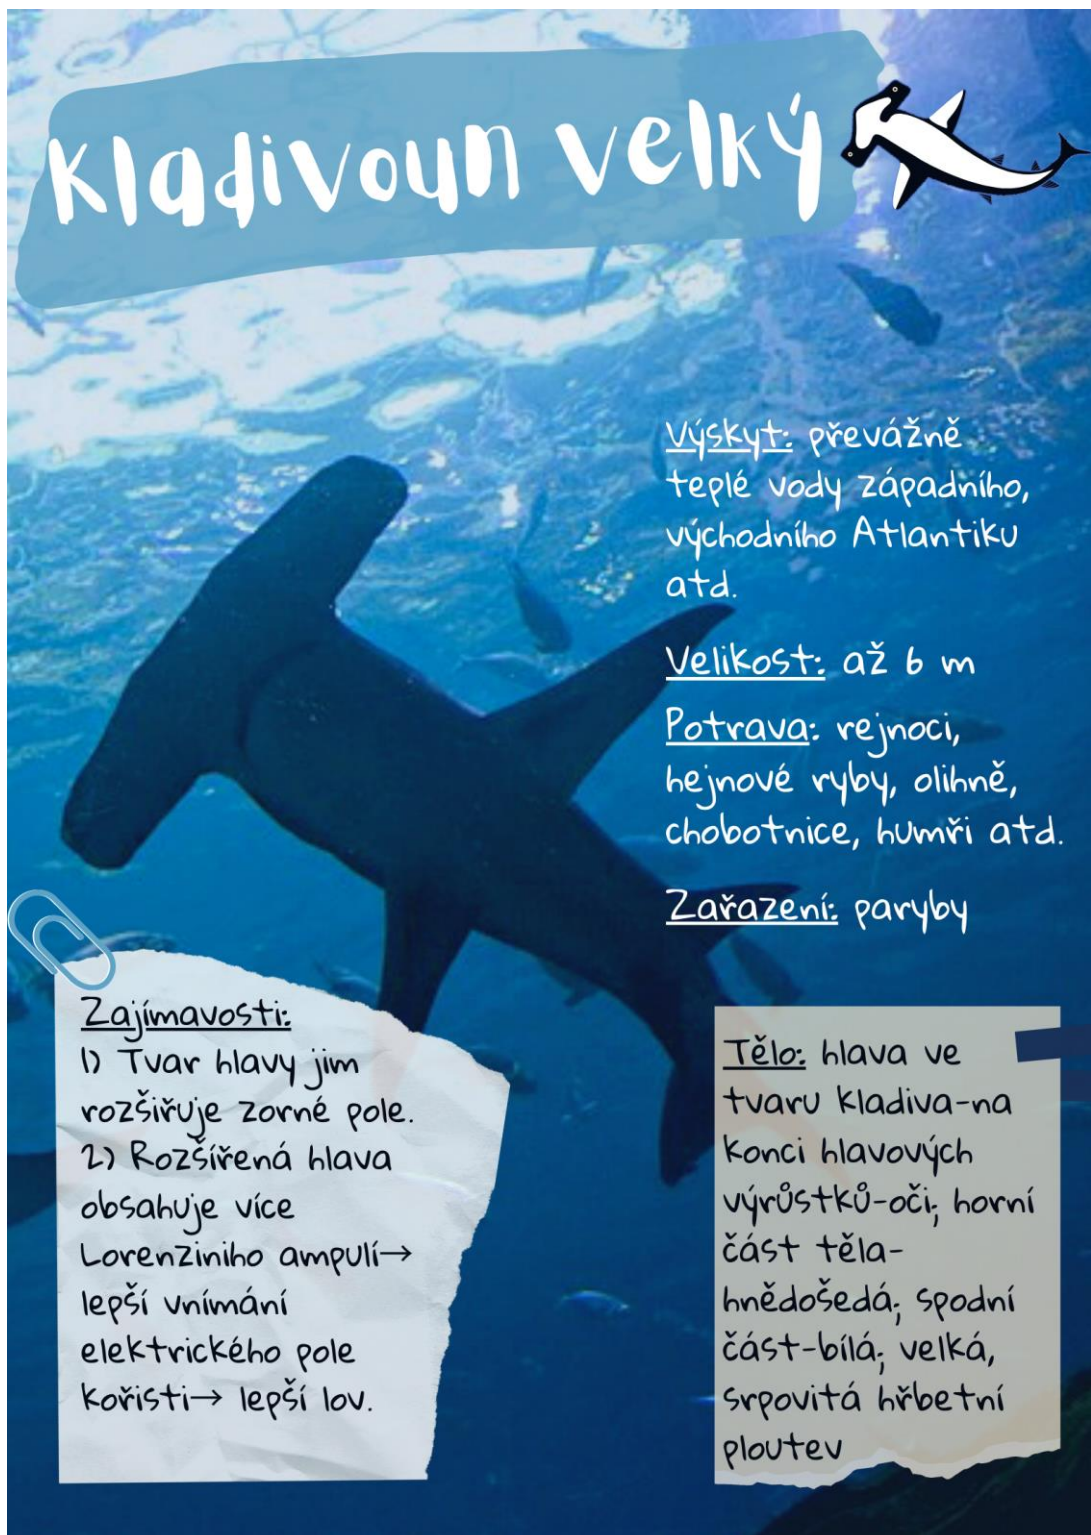 Kladivoun velký
Výskyt: převážně
teplé vody západního,
východního Atlantiku
atd.
Velikost: až 6 m
Potrava: rejnoci,
hejnové ryby, olihně,
chobotnice, humři atd.
Zařazení: paryby
Zajímavosti:
1) Tvar hlavy jim
rozšiřuje zorné pole.
2) Rozšířená hlava
obsahuje více
Lorenziniho ampulí→
lepší vnímání
elektrického pole
kořisti→ lepší lov.
Tělo: hlava ve
tvaru kladiva-na
konci hlavových
výrůstků-oči; horní
část těla-
hnědošedá; spodní
část-bílá; velká,
srpovitá hřbetní
ploutev